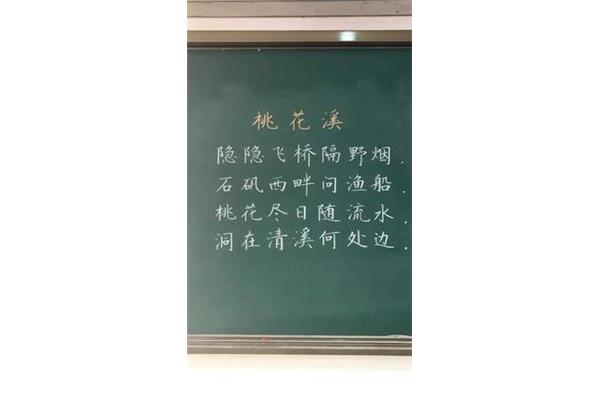 桃花溪
隐隐飞桥隔野烟.
石矶西畔问渔船.
桃花尽日随流水.
洞在清溪何处边.